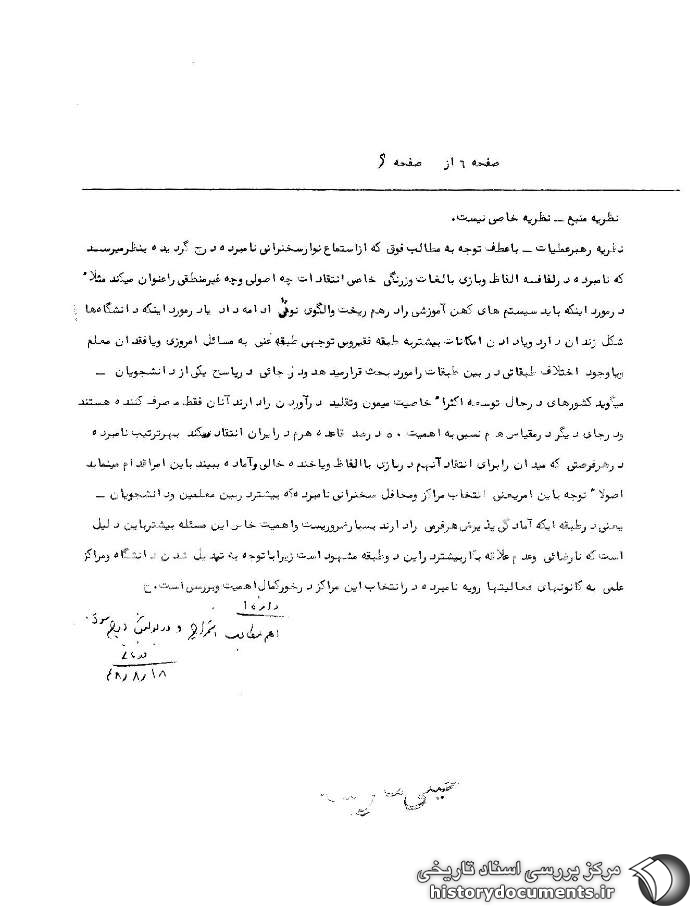 صفحه ٦ از صفحه ۶
نظریه منبع ــ نظریه خاصی نیست.
نظریه رهبرعملیات ــ باعطف توجه به مطالب فوق که ازاستماع نوارسخنرانی نامبرده درج گردیده بنظرمیرسد
که نامبرده درلفافه الفاظ وبازی بالغات وزرنگی خاصی انتقادات چه اصولی وچه غیرمنطقی راعنوان میکند مثلاً
درمورد اینکه باید سیستم های کهن آموزشی رادرهم ریخت والگوی نوئی ادامه داد یادرمورد اینکه دانشگاه‌ها
شکل زندان دارد ویادادن امکانات بیشتربه طبقه فقیروبی توجهی طبقه غنی به مسائل امروزی ویافقدان معلم
ویاوجود اختلاف طبقاتی دربین طبقات رامورد بحث قرارمیدهد ودرجائی درپاسخ یکی ازدانشجویان ــ
میگوید کشورهای درحال توسعه اکثراً خاصیت میمون وتقلید درآوردن رادارند آنان فقط مصرف کننده هستند
ودرجای دیگر درمقیاس هم نسبی به اهمیت ۵۰ درصد قاعده هرم درایران انتقاد میکند بهرترتیب نامبرده
درهرفرصتی که میدان رابرای انتقاد آنهم دربازی باالفاظ ویاخنده خالی وآماده ببیند باین امراقدام مینماید
اصولاً توجه باین امریعنی انتخاب مراکز ومحافل سخنرانی نامبرده که بیشتردربین معلمین ودانشجویان ــ
یعنی درطبقه ایکه آمادگی پذیرش هرفرمی رادارند بسیارضروریست واهمیت خاص این مسئله بیشترباین دلیل
است که نارضائی وعدم علاقه بکاربیشتردراین دوطبقه مشهود است زیراباتوجه به تبدیل شدن دانشگاه ومراکز
علمی به کانونهای فعالیتها رویه نامبرده درانتخاب این مراکز درخورکمال اهمیت وبررسی است. ح
اهم مطالب استخراج و در بولتن درج شود
۴۸/۸/۱۸
مرکز بررسی اسناد تاریخی
historydocuments.ir